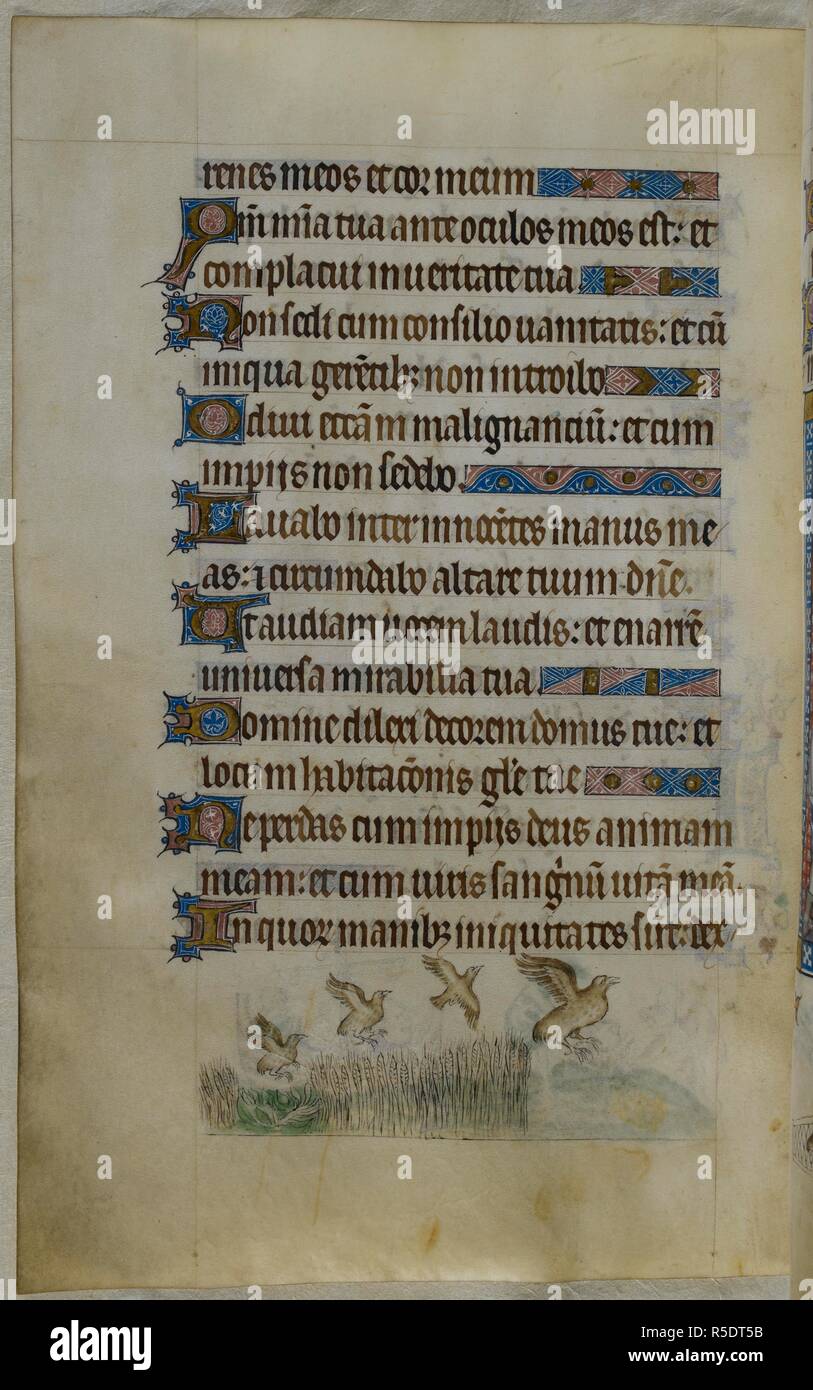 renes meos et cor meum
Qm̄ mīa tua ante oculos meos est: et
complacui in ueritate tua
Non sedi cum consilio uanitatis: et cū
iniqua gerētibꝫ non introibo
Odiui eccām malignanciū: et cum
impijs non sedebo.
Lauabo inter innocētes manus me
as: ⁊ circumdabo altare tuum dn̄e.
Ut audiam uocem laudis: et enarrē
uniuersa mirabilia tua.
Domine dilexi decorem domus tue: et
locum habitacōnis gl̄e tue
Ne perdas cum impijs deus animam
meam: et cum uiris sanḡnū uitā meā.
In quor manibꝫ iniquitates sūt: dex
a alamy
alamy
Image ID: R5DT5B
www.alamy.com